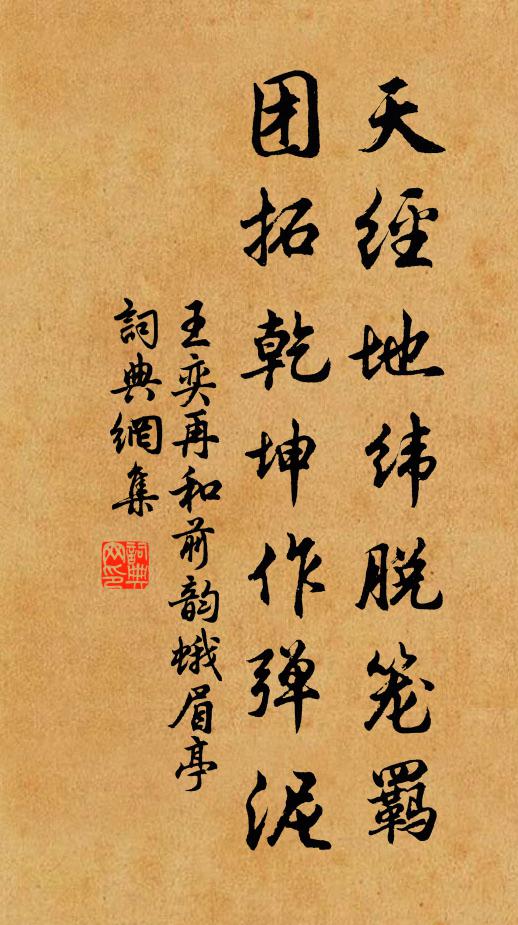 天經地緯脫笼羁
团拓乾坤作弹泥
王奕再和前韵蛾眉亭
詞典網集
詞典网印